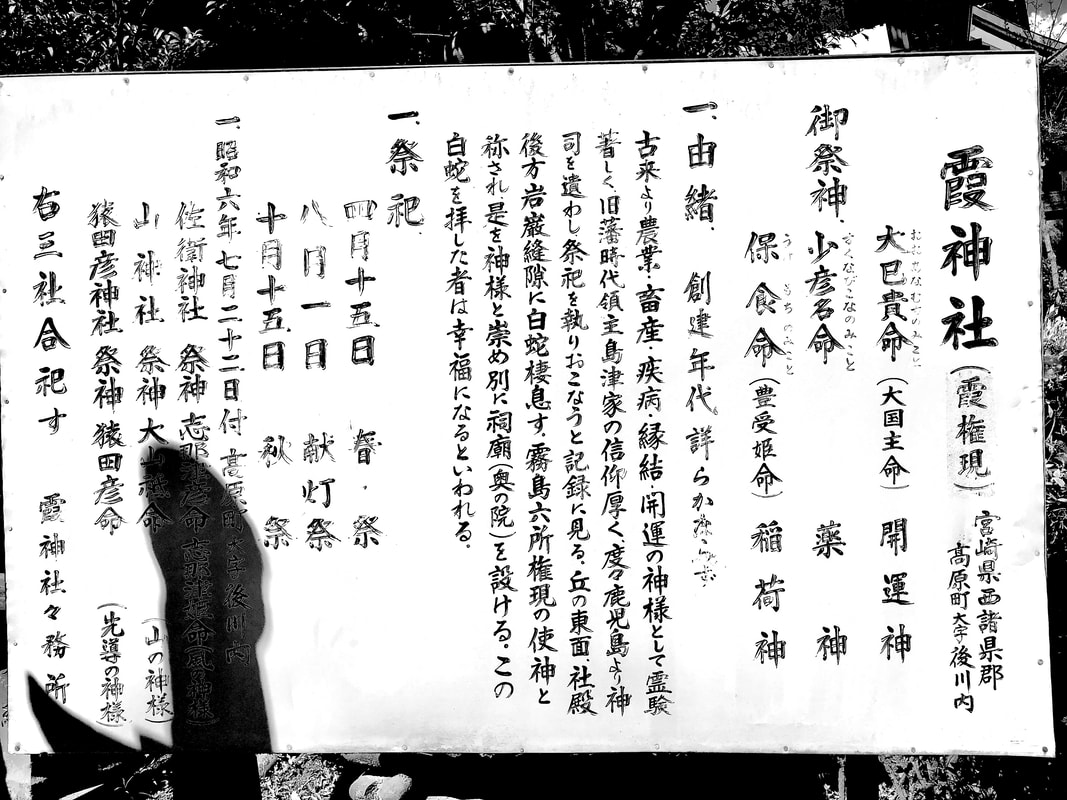 霞神社(霞権現)
宮崎県西諸県郡
高原町大字後川内
御祭神.
おおあなむちのみこと
大巳貴命(大国主命)開運神
すくなびこなのみこと
少彦名命 薬神
うけもちのみこと
保食命(豊受姫命)稲荷神
一.由緒.創建年代詳らかならず
古来より農業・畜産・疾病・縁結・開運の神様として霊験
著しく、旧藩時代領主島津家の信仰厚く、度々鹿児島より神
司を遺わし祭祀を執りおこなうと記録に見る。丘の東面.社殿
後方岩巌縫隙に白蛇棲息す。霧島六所権現の使神と
祢され、是を神様と崇め別に祠廟(奥の院)を設ける。この
白蛇を拝した者は幸福になるといわれる.
一.祭祀.
四月十五日 春・祭
八月一日 献灯祭
十月十五日 秋祭
一.昭和六年七月二十二日付 高原町大字後川内
佐衛神社 祭神 志那津彦命 志那津姫命(風の神様)
山神社 祭神 大山祇命(山の神様)
猿田彦神社 祭神 猿田彦命(先導の神様)
右三社合祀す 霞神社々務所